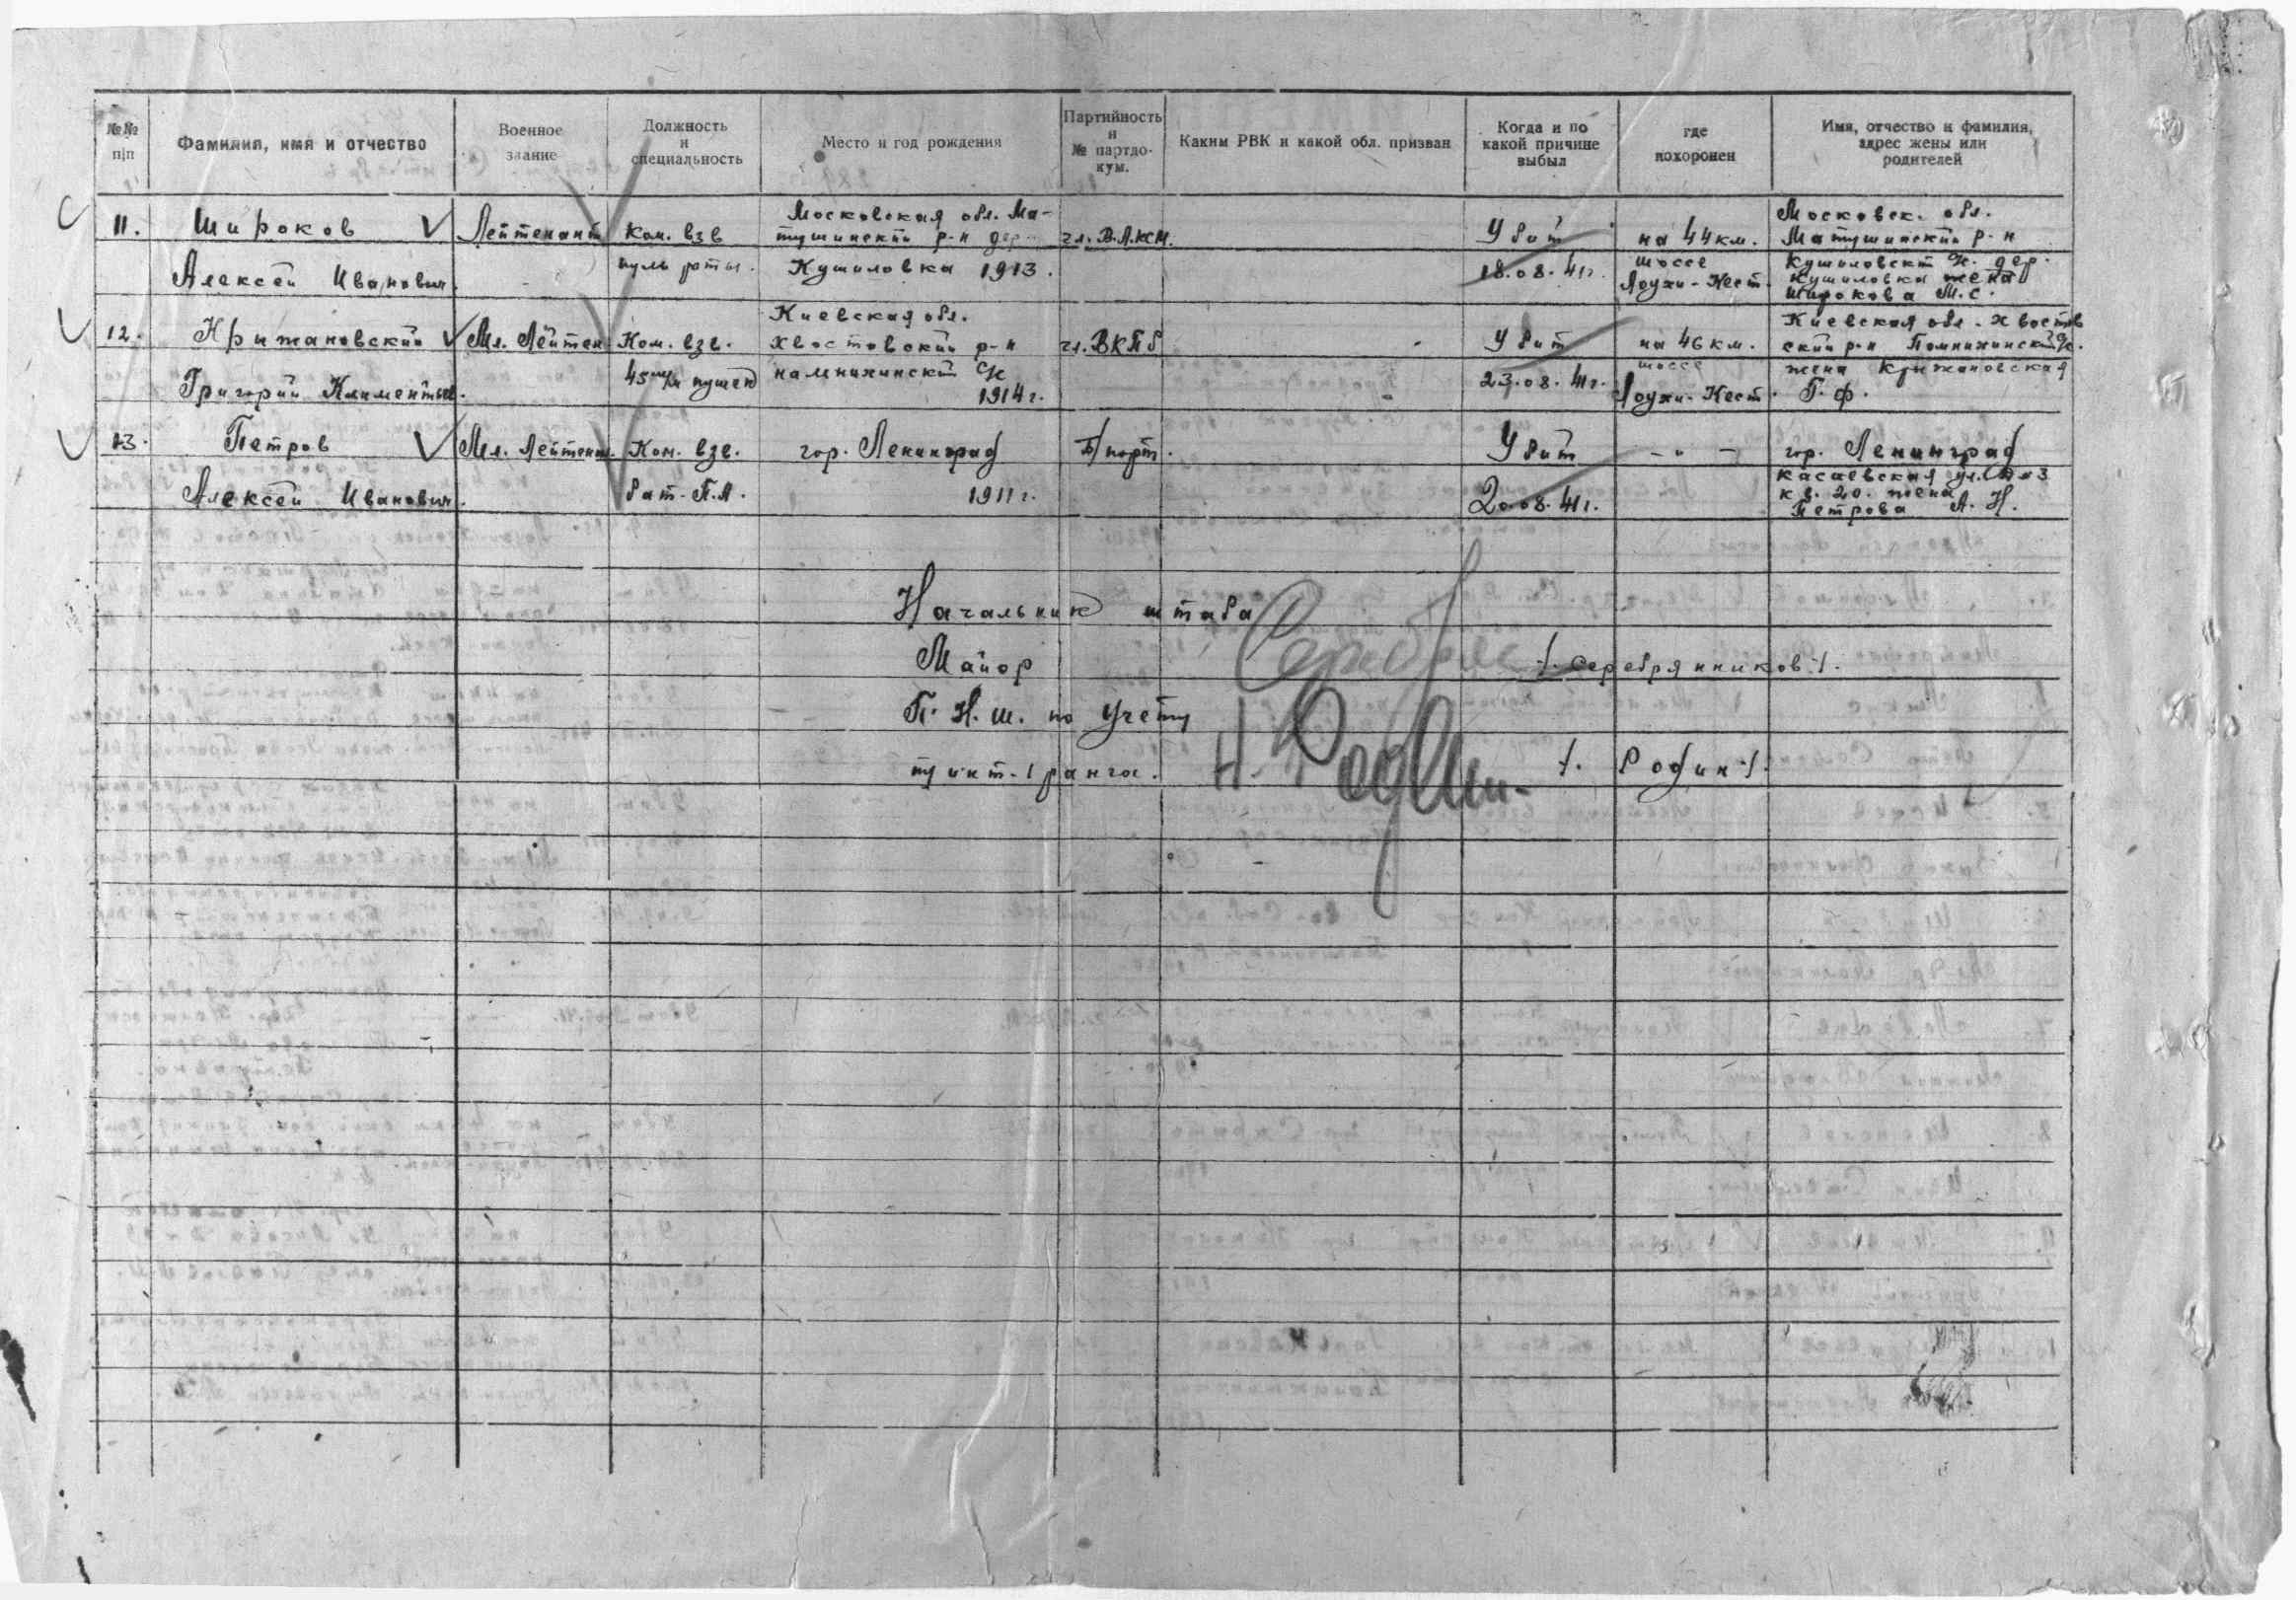 №№ п|п
Фамилия, имя и отчество
Военное звание
Должность и специальность
Место и год рождения
Партийность и № партдокум.
Каким РВК и какой обл. призван
Когда и по какой причине выбыл
где похоронен
Имя, отчество и фамилия, адрес жены или родителей
11. Широков Лейтенант Ком. взв Московская обл. Ма- тушинский р-н дер. чл. В.Л.КСМ. Убит на 44 км. Московск. обл. Матушинский р-н
Алексей Иванович. пуль роты. Кушиловка 1913. 18.08.41г. шоссе Лоухи-Кест. Кушиловский дер. Кушиловка жена Широкова М.С.
12. Крижановский Мл. Лейтен Ком. взв. Киевская обл. Хвостовский р-н чл. ВКПб Убит на 46 км. Киевская обл. Хвостов ский р-н
Григорий Климентьев. 45 м/м пушек 1914г. 23.08.41г. шоссе Лоухи-Кест. жена Крижановская Г.Ф.
13. Петров Мл. Лейтенан. Ком. взв. гор. Ленинград Б/парт. Убит -"- гор. Ленинград
Алексей Иванович. бат. П.А. 1911г. 20.08.41г. Касаевская ул. кв. 20. жена Петрова А. Н.
Начальник штаба
Майор /. Серебрянников ./.
П.Н.Ш. по учету
т/инт. 1 ранга. Н. Родин /. Родин ./.